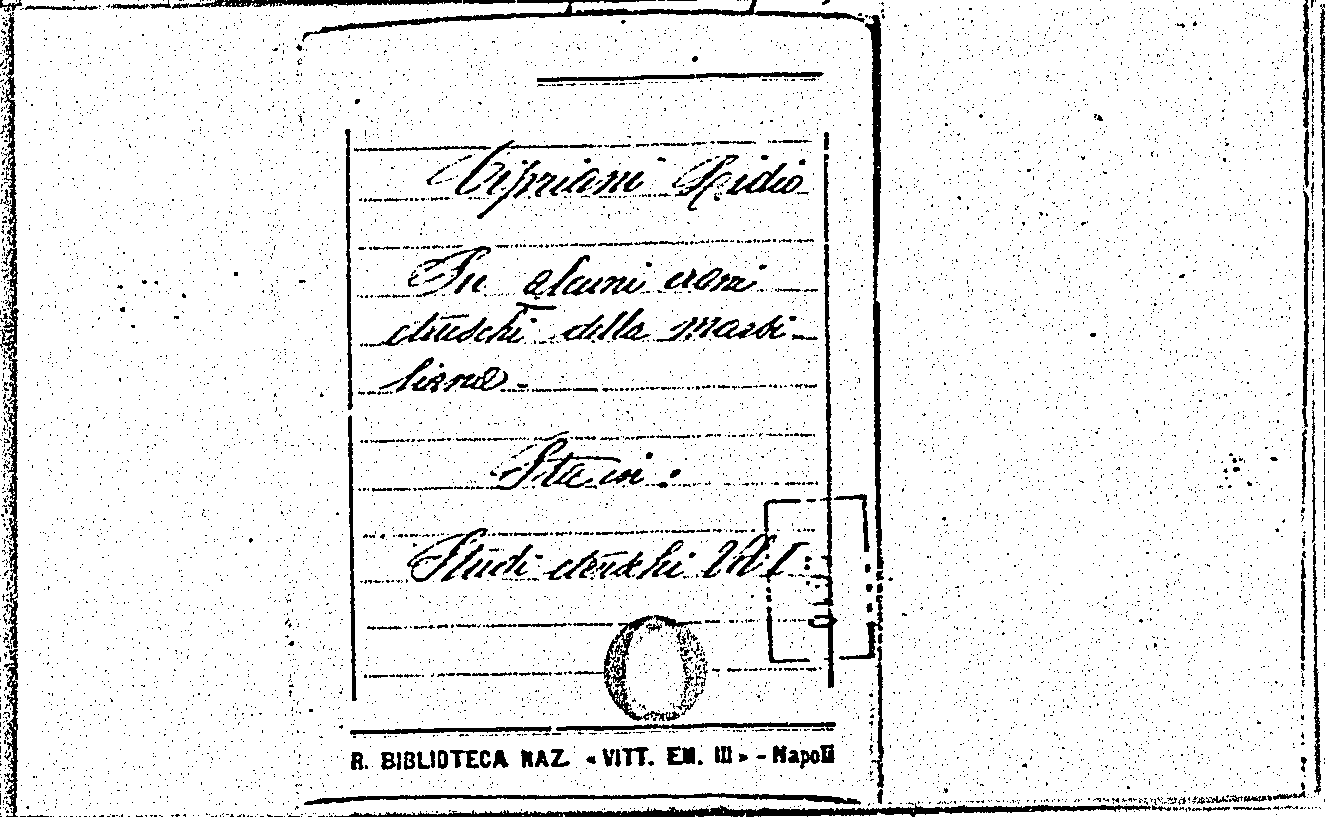 Cipriani Lidio
Su alcuni crani
etruschi della Marsi-
liana.
Sta in:
Studi etruschi Vol. I
R. BIBLIOTECA NAZ. «VITT. EM. III» - Napoli